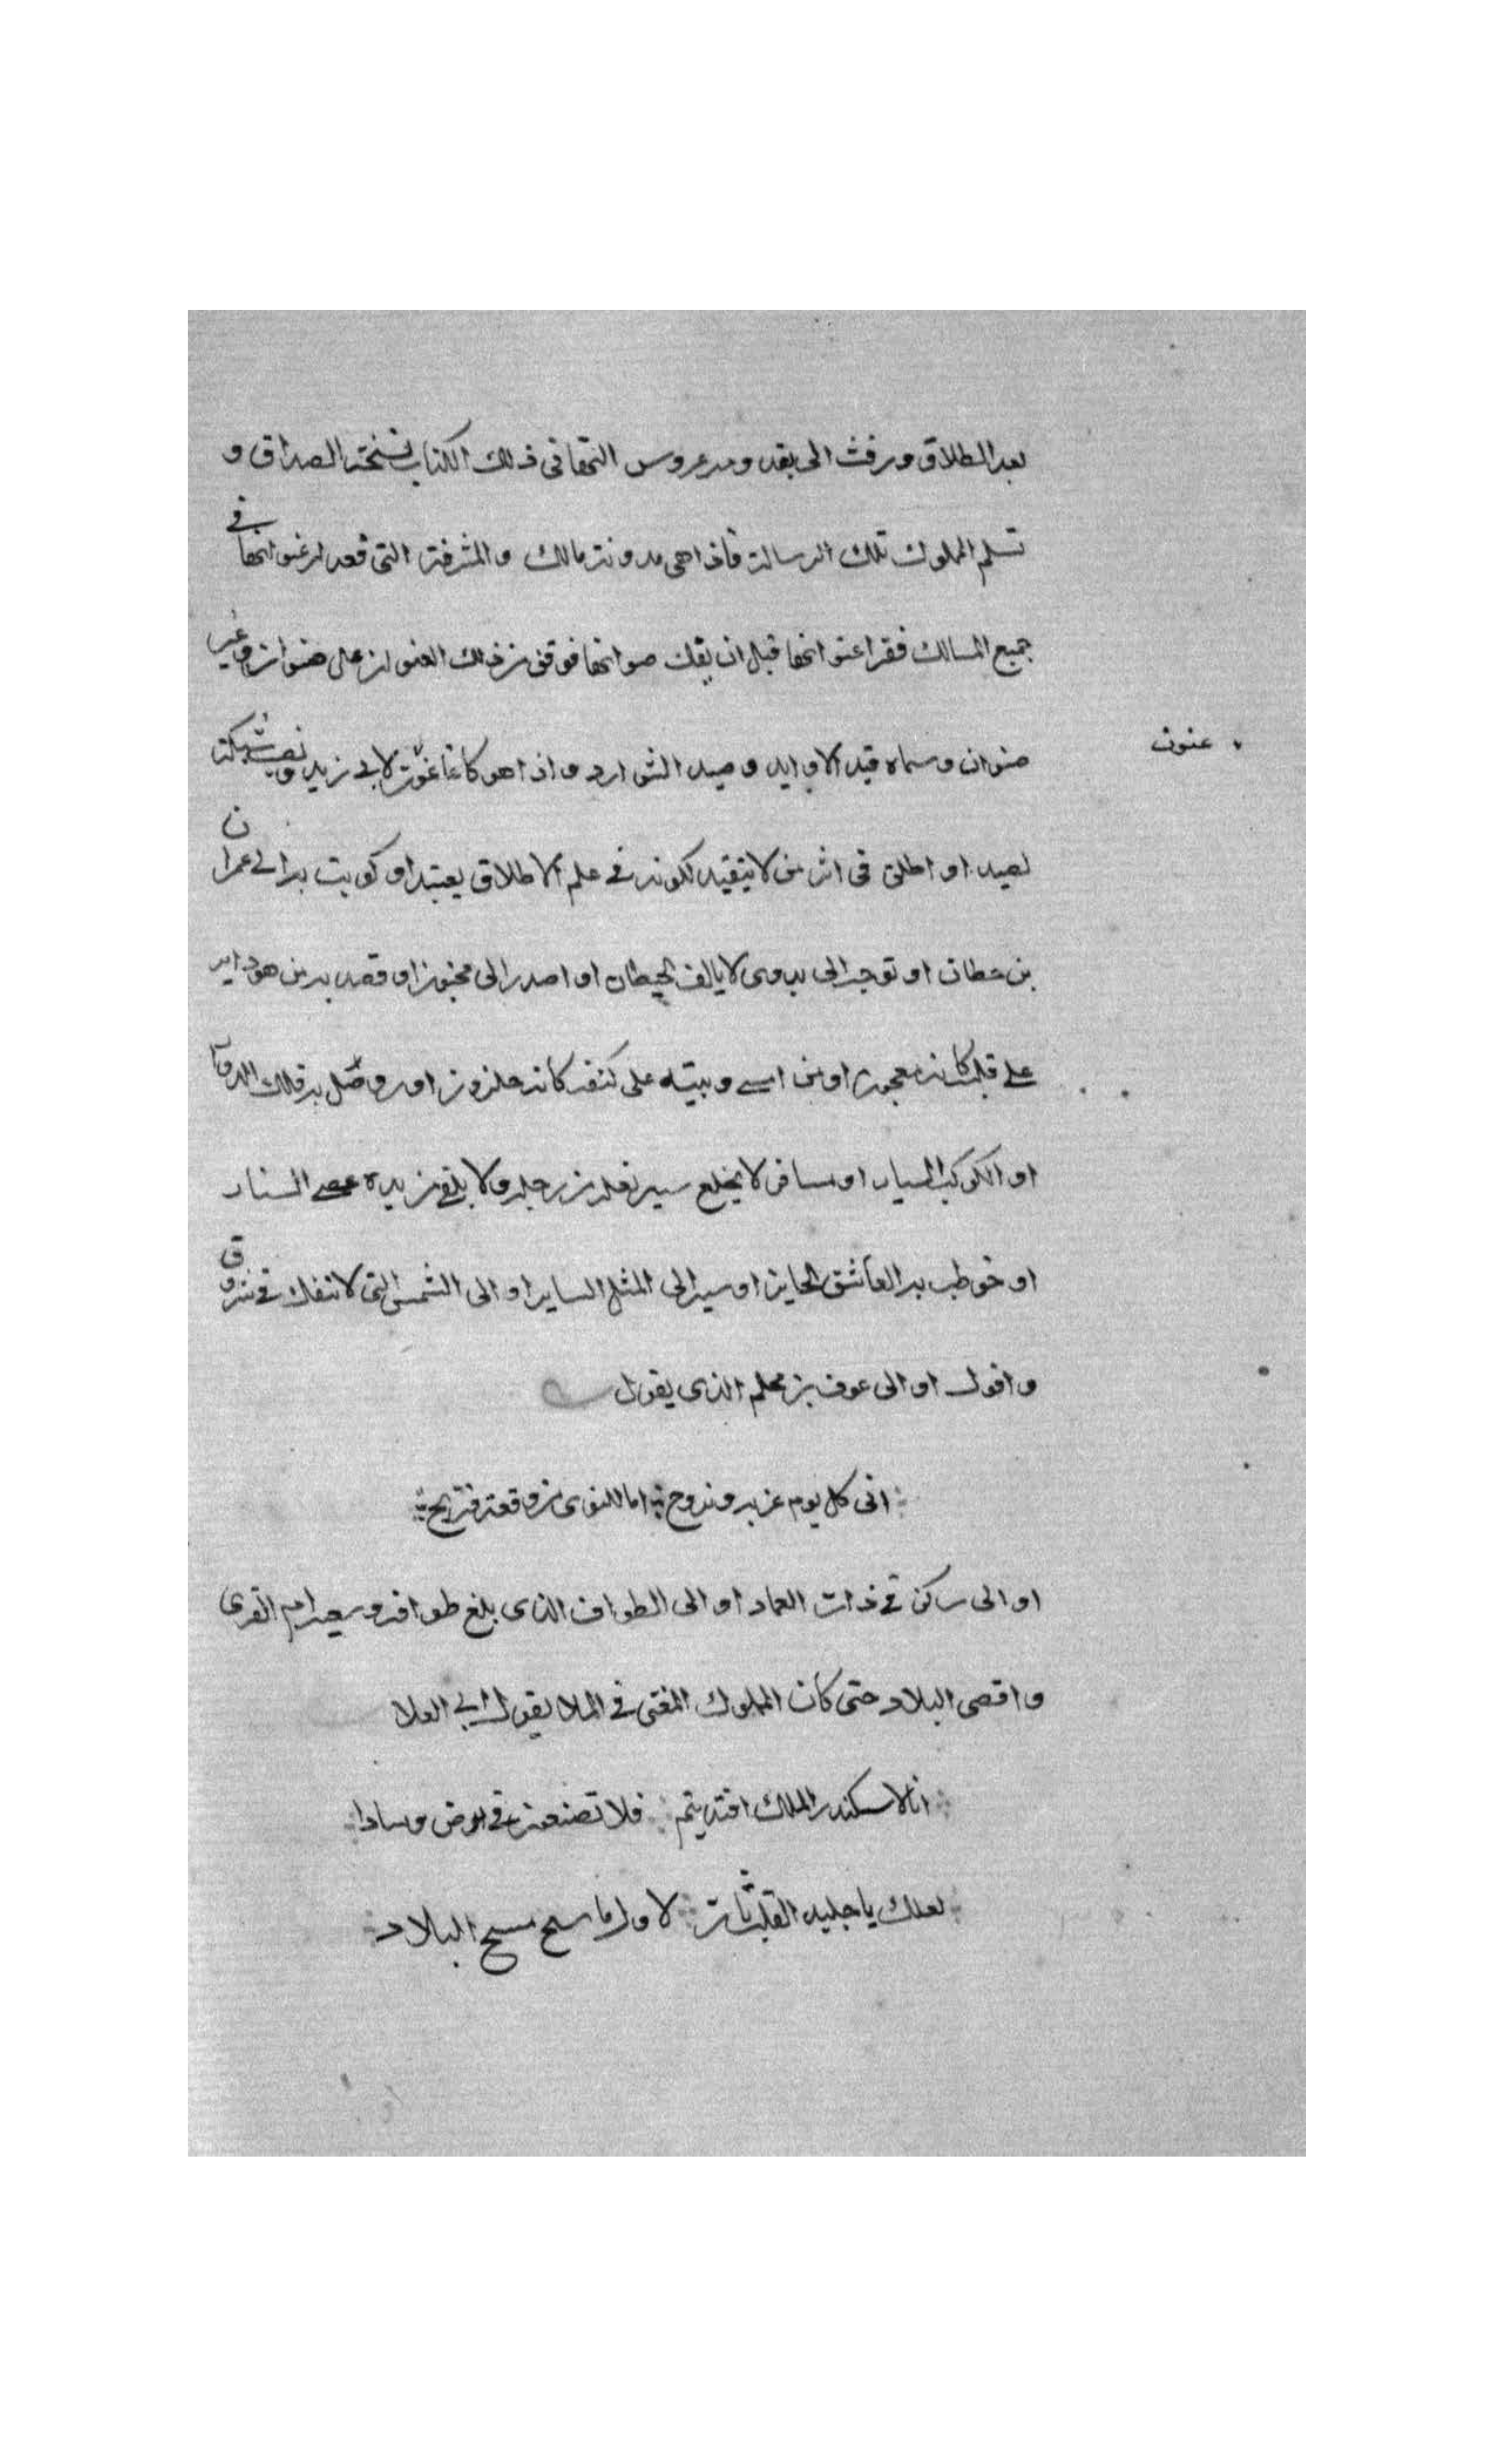 بعد الطلاق وزفت الى بقدومه عروس التهانى فى ذلك الكتاب نسخة الصداق و
تسلم المملوك تلك الرسالة فاذا هى مدونة مالك والمشرفة التى قعد له عنوانها فى
جميع المسالك فقرا عنوانها قبل ان يفك صوانها فوقف من ذلك العنوان على صنوان وغير
عنون
صنوان وسماه قيد الاوابد وصيد الشوارد واذا هو كانما عنون لابى زيد ونصب شبكة
لصيد او اطلق فى اثر من لا يتقيد لكونه فى علم الاطلاق يعتبد او كوتبت به الى عمران
بن حطان او توجه الى بدوى لا يالف الحيطان او اصدر الى مجنون او قصد به من هودايه
على قلبه كانه معجون او من امسى وبيته على كتفه كانه حلزون او روصل به فلك الدوار
او الكوكب السيار او مسافر لا يخلع سير نعله من رجله ولا يلقى من يده عصى السنار
او خوطب به العاشق الحاير او سير الى المثل الساير او الى الشمس التى لا تنفك فى شروق
وافول او الى عوف بن محلم الذى يقول
افى كل يوم غربة ونزوح اما للنوى من وقعة فتريح
او الى ساكن فى ذات العماد او الى الطواف الذى بلغ طوافه وسعيه ام القرى
واقصى البلاد حتى كان المملوك المغنى فى الملا بقول ابى العلا
انا الاسكندر الملك اقتديتم فلا تضعون فى ارض وسادا
لعلك يا جليد القلب ثان لاول ماسح مسح البلاد